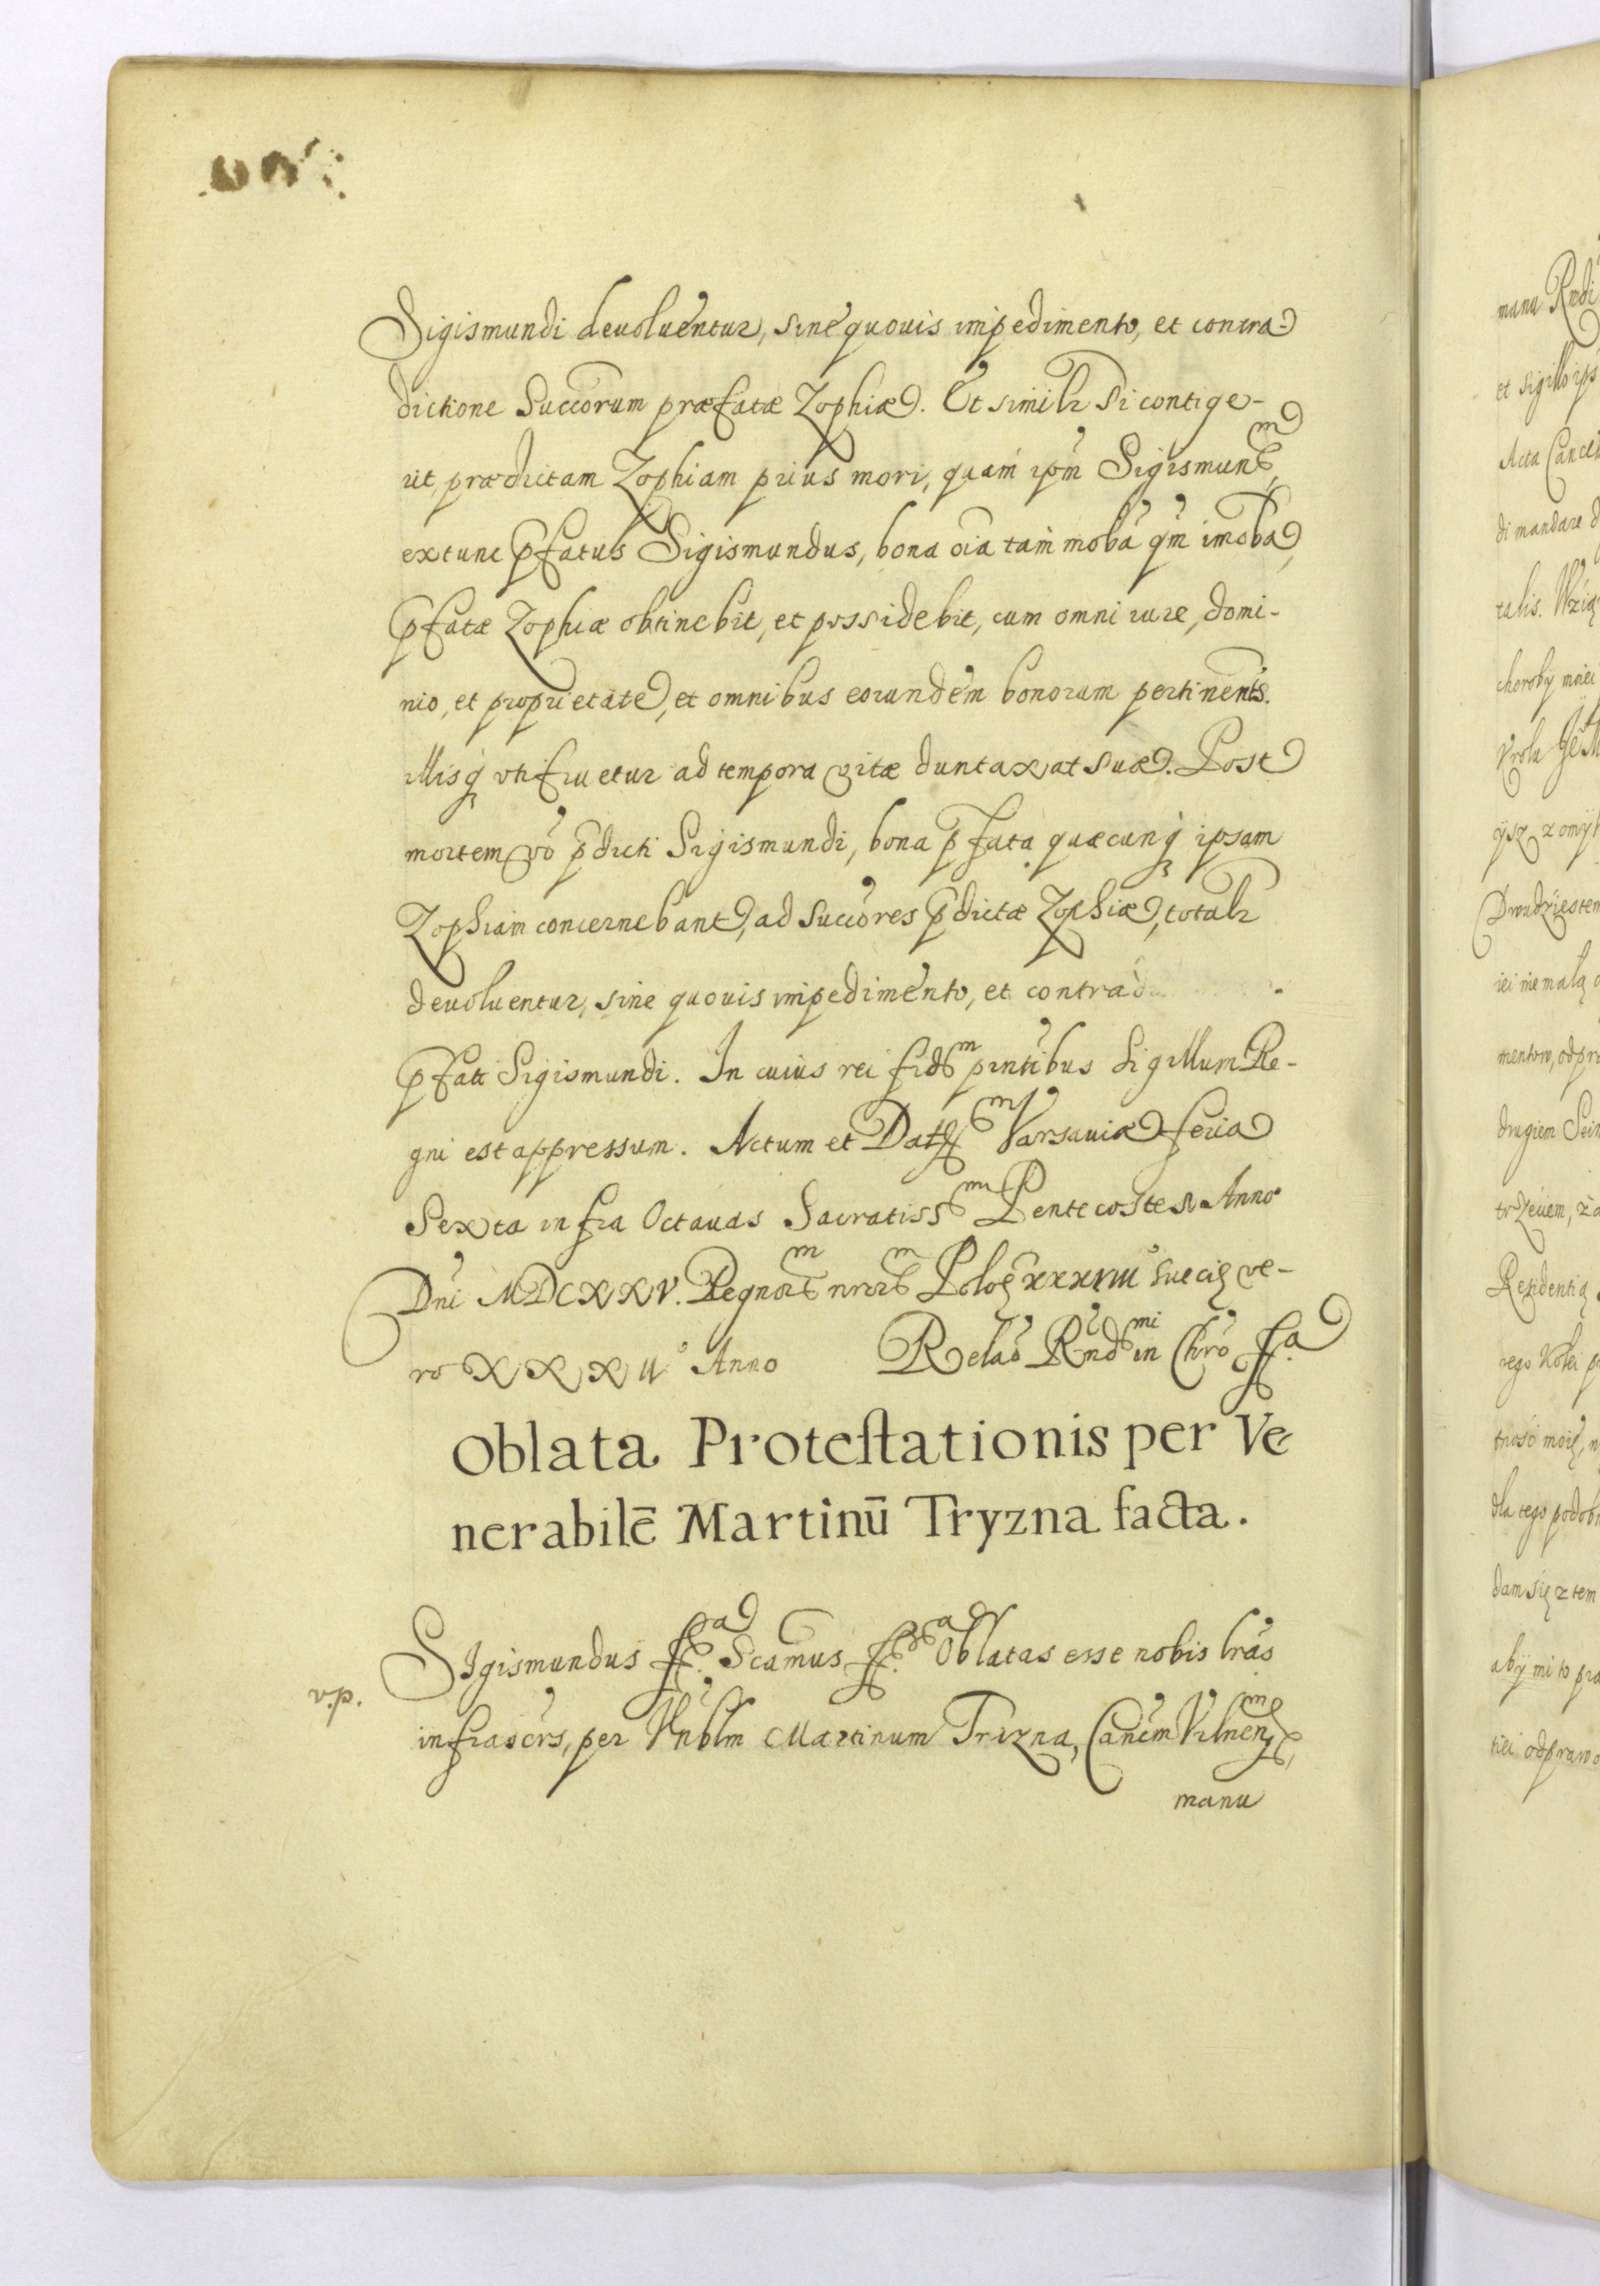 Sigismundi deuoluentur, sine quouis impedimento, et contra-
dictione Succorum præfatæ Zophiæ. Et similr si contige-
rit, prædictam Zophiam prius mori, quam ipm Sigismun
extunc pfatus Sigismundus, bona oia tam moba qm imoba,
pfatæ Zophiæ obtinebit, et possidebit, cum omni iure, domi-
nio, et proprietate, et omnibus eorundem bonorum pertinents.
illisq utifruetur ad tempora vitæ duntaxat suæ. Post
mortem vo pdicti Sigismundi, bona pfata quæcunq ipsam
Zophiam concernebant, ad succores pdictæ Zophiæ, totalr
deuoluentur, sine quouis impedimento, et contrad
pfati Sigismundi. In cuius rei fid pntibus Sigillum Re-
gni est appressum. Actum et Dat Varsauiæ feria
Sexta infra Octauas Sacratiss Pentecostes Anno
Dni MDCXXV. Regnor nror Polo XXXVIII Suecię ve-
ro XXXII° Anno Relao Rnd mi in Chro ff.a
Oblata Protestationis per Ve
nerabilē Martinū Tryzna facta.
Sigismundus ff.a Scamus ff.a Oblatas esse nobis lras
v.p.
infrascrs, per Vnblm Martinum Trizna, Canem Vilnen
manu
manu
et sigillo ips
Acta Cancel
di mandare
talis.
choroby
Vrola
Dwudziestem
iei nie małą
drugiem
Residentią
dla tego podob
dam się z tem
aby mi to pra